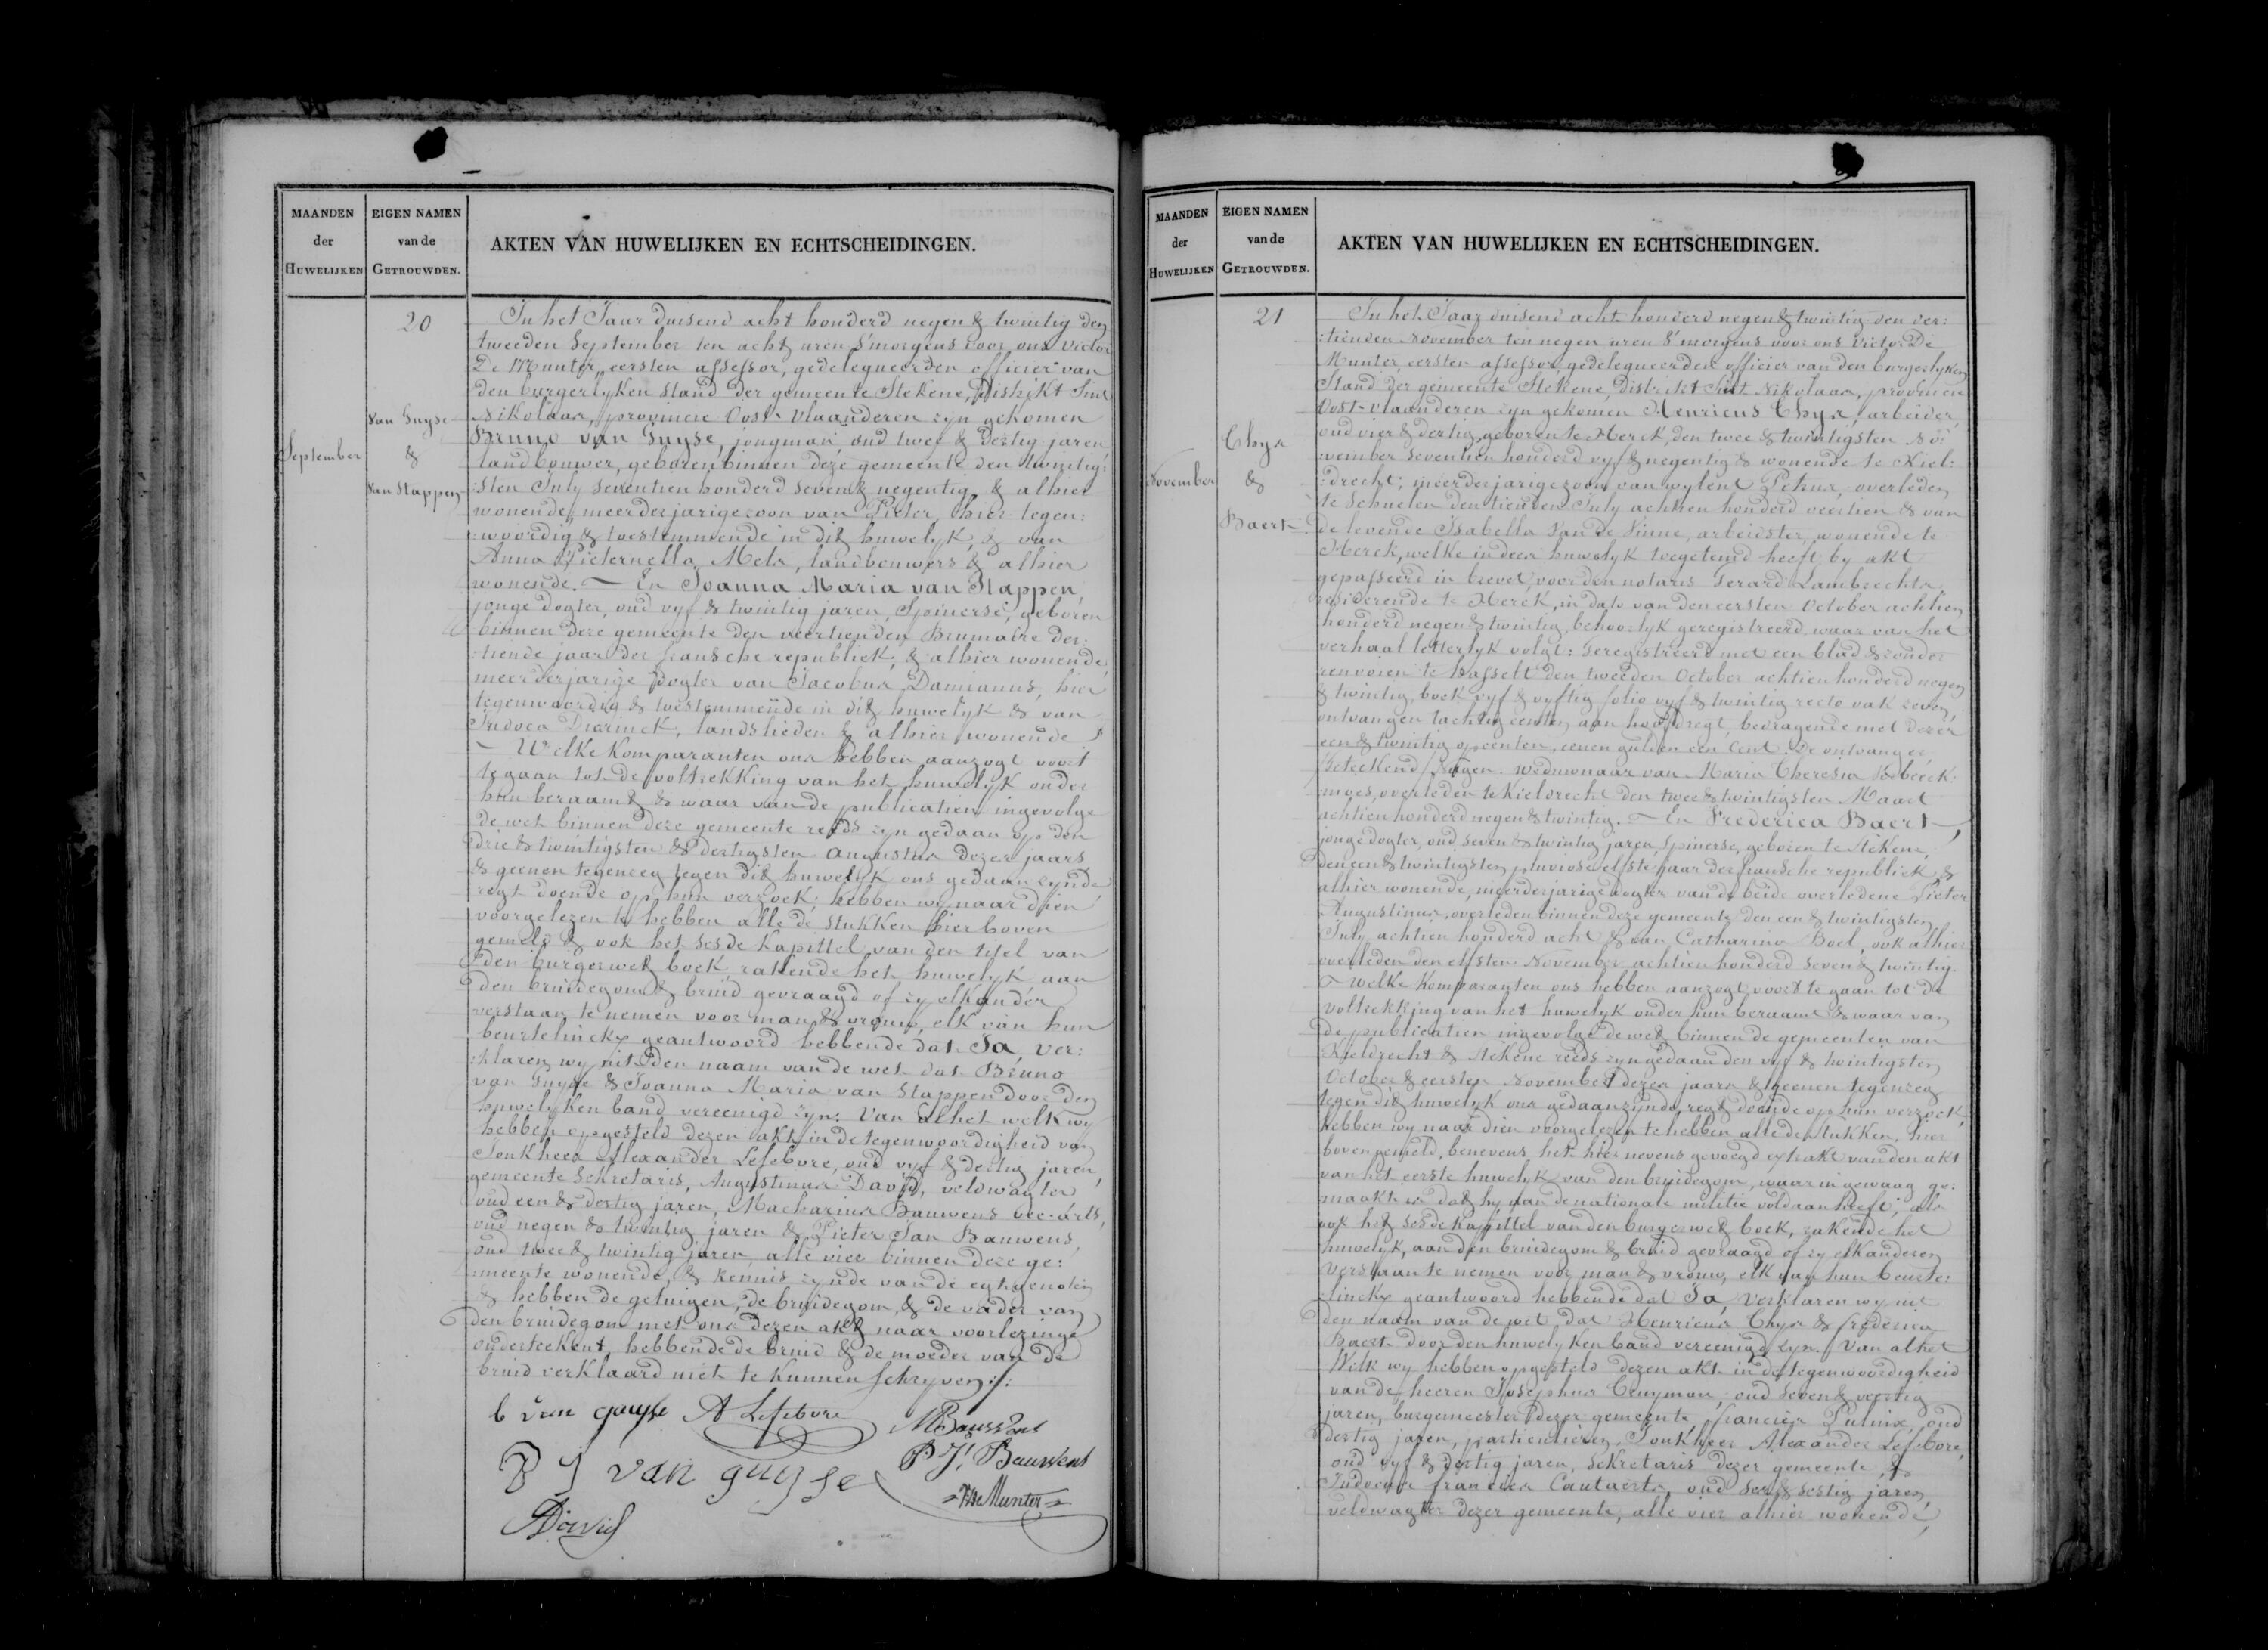 MAANDEN
der
HUWELIJKEN
EIGEN NAMEN
van de
GETROUWDEN.
AKTEN VAN HUWELIJKEN EN ECHTSCHEIDINGEN.
September
20
Van Guyse
&
Van Stappen
In het Jaar duisend acht honderd negen & twintig den
tweeden September ten acht uren S'morgens voor ons Victor
De Munter, eersten assessor, gedelegueerden officier van
den burgerlyken stand der gemeente Stekene, Distrikt Sint
Nikolaas, provincie Oost-Vlaanderen zyn gekomen
Bruno van Guyse, jongman oud twee & dertig jaren,
landbouwer, geboren binnen deze gemeente den twintig:
:sten July seventien honderd seven & negentig & alhier
wonende, meerderjarige zoon van Pieter, hier tegen:
:woordig & toestemmende in dit huwelyk & van
Anna Pieternella Mels, landbouwers & alhier
wonende. — En Joanna Maria van Stappen,
jonge dogter, oud vyf & twintig jaren, Spinersse, geboren
binnen deze gemeente den veertienden Brumaire der:
:tiende jaar der fransche republiek, & alhier wonende,
meerderjarige dogter van Jacobus Damianus, hier
tegenwoordig & toestemmende in dit huwelyk & van
Judoca Dierinck, landslieden & alhier wonende
— Welke Komparanten ons hebben aanzogt voort
te gaan tot de voltrekking van het huwelyk onder
hun beraamt & waar van de publicatien ingevolge
de wet binnen deze gemeente reeds zyn gedaan op den
drie & twintigsten & dertigsten Augustus dezer jaars
& geenen tegenzeg tegen dit huwelyk ons gedaan zynde
regt doende op hun verzoek, hebben wy naar dien
voorgelezen te hebben alle de Stukken hier boven
gemeld & ook het sesde Kapittel van den titel van
den burger wet boek rakende het huwelyk aan
den bruidegom & bruid gevraagd of zy elkander
verstaan te nemen voor man & vrouw, elk van hun
beurtelinckx geantwoord hebbende dat Ja, ver:
:klaren wy uit den naam van de wet dat Bruno
van Guyse & Joanna Maria van Stappen door den
huwelyken band vereenigd zyn. Van al het welk wy
hebben opgesteld dezen akt in de tegenwoordigheid van
Jonkheer Alexander Lefebvre, oud vyf & dertig jaren,
gemeente Sekretaris, Augustinus David, veldwagter
oud een & dertig jaren, Macharius Bauwens vee-arts,
oud negen & twintig jaren & Pieter Jan Bauwens,
oud twee & twintig jaren, alle vier binnen deze ge:
:meente wonende, & kennis zynde van de egtgenoten
& hebben de getuigen, de bruidegom, & de vader van
den bruidegom met ons dezen akt naar voorlezinge
onderteekent, hebbende de bruid & de moeder van de
bruid verklaard niet te kunnen schryven.
b van guyse A Lefebvre MBauwens
P J van guyse P. J. Bauwens
VDe Munter
ADavid
MAANDEN
der
HUWELIJKEN
EIGEN NAMEN
van de
GETROUWDEN.
AKTEN VAN HUWELIJKEN EN ECHTSCHEIDINGEN.
November
21
Thys
&
Baert
In het Jaar duisend acht honderd negen & twintig den der:
:tienden November ten negen uren S'morgens voor ons Victor De
Munter, eersten assessor gedelegueerden officier van den burgerlyken
Stand der gemeente Stekene, Distrikt Sint Nikolaas, provincie
Oost-vlaanderen zyn gekomen Henricus Thys, arbeider,
oud vier & dertig, geboren te Herck, den twee & twintigsten No:
:vember seventien honderd vyf & negentig & wonende te Kiel:
:drecht; meerderjarige zoon van wylent Petrus, overleden
te Schuelen den tienden July achtien honderd veertien & van
de levende Isabella Van de Vinne, arbeidster, wonende te
Herck, welke in deze huwelyk toegestemd heeft by akt
gepasseerd in brevet, voor den notaris Gerard Lambrechts,
residerende te Herck, in dato van den eersten October achtien
honderd negen & twintig, behoorlyk geregistreerd, waar van het
verhaal letterlyk volgt: Geregistreerd met een blad & zonder
renvoien te Hasselt den tweeden October achtien honderd negen
& twintig, boek vyf & vyftig folio vyf & twintig recto vak zeven,
ontvangen tachtig centen aan hoofdregt, bedragende met dezer
een & twintig opcenten, eenen gulden een Cent. De ontvanger,
(Geteekend) weduwnaar van Maria Theresia
moes, overleden te Kieldrecht den twee & twintigsten Maart
achtien honderd negen & twintig. — En Frederica Baert,
jonge dogter, oud seven & twintig jaren Spinersse, geboren te Stekene,
den een & twintigsten pluviose elfste jaar der fransche republiek &
alhier wonende, meerderjarige dogter van de beide overledene Pieter
Augustinus, overleden binnen deze gemeente den een & twintigsten
July achtien honderd acht & van Catharina Boel, ook alhier
overleden den elfsten November achtien honderd seven & twintig.
— Welke Komparanten ons hebben aanzogt voort te gaan tot de
voltrekking van het huwelyk onder hun beraamt & waar van
de publicatien ingevolge de wet binnen de gemeenten van
Kieldrecht & Stekene reeds zyn gedaan den vyf & twintigsten
October & eersten November dezes jaars & geenen tegenzeg
tegen dit huwelyk ons gedaan zynde, regt doende op hun verzoek,
hebben wy naar dien voorgelezen te hebben alle de stukken, hier
boven gemeld, benevens het hier nevens gevoegd extrakt van den akt
van het eerste huwelyk van den bruidegom, waar in gewaag ge:
maakt is dat hy aan de nationale militie voldaan heeft, als
ook het sesde kapittel van den burger wet boek, rakende het
huwelyk, aan den bruidegom & bruid gevraagd of zy elkanderen
verstaan te nemen voor man & vrouw, elk van hun beurte:
:linckx geantwoord hebbende dat Ja, verklaren wy uit
den naam van de wet dat Henricus Thys & frederica
Baert door den huwelyken band vereenigd zyn. Van al het
Welk wy hebben opgesteld dezen akt in de tegenwoordigheid
van de heeren Josephus Cruyman, oud seven & veertig
jaren, burgemeester dezer gemeente, francies oud
dertig jaren, particulieren, Jonkheer Alexander Lefebvre,
oud vyf & dertig jaren, sekretaris dezer gemeente, &
Judocus francies Cautaerts, oud ses & sestig jaren
veldwagter dezer gemeente, alle vier alhier wonende,